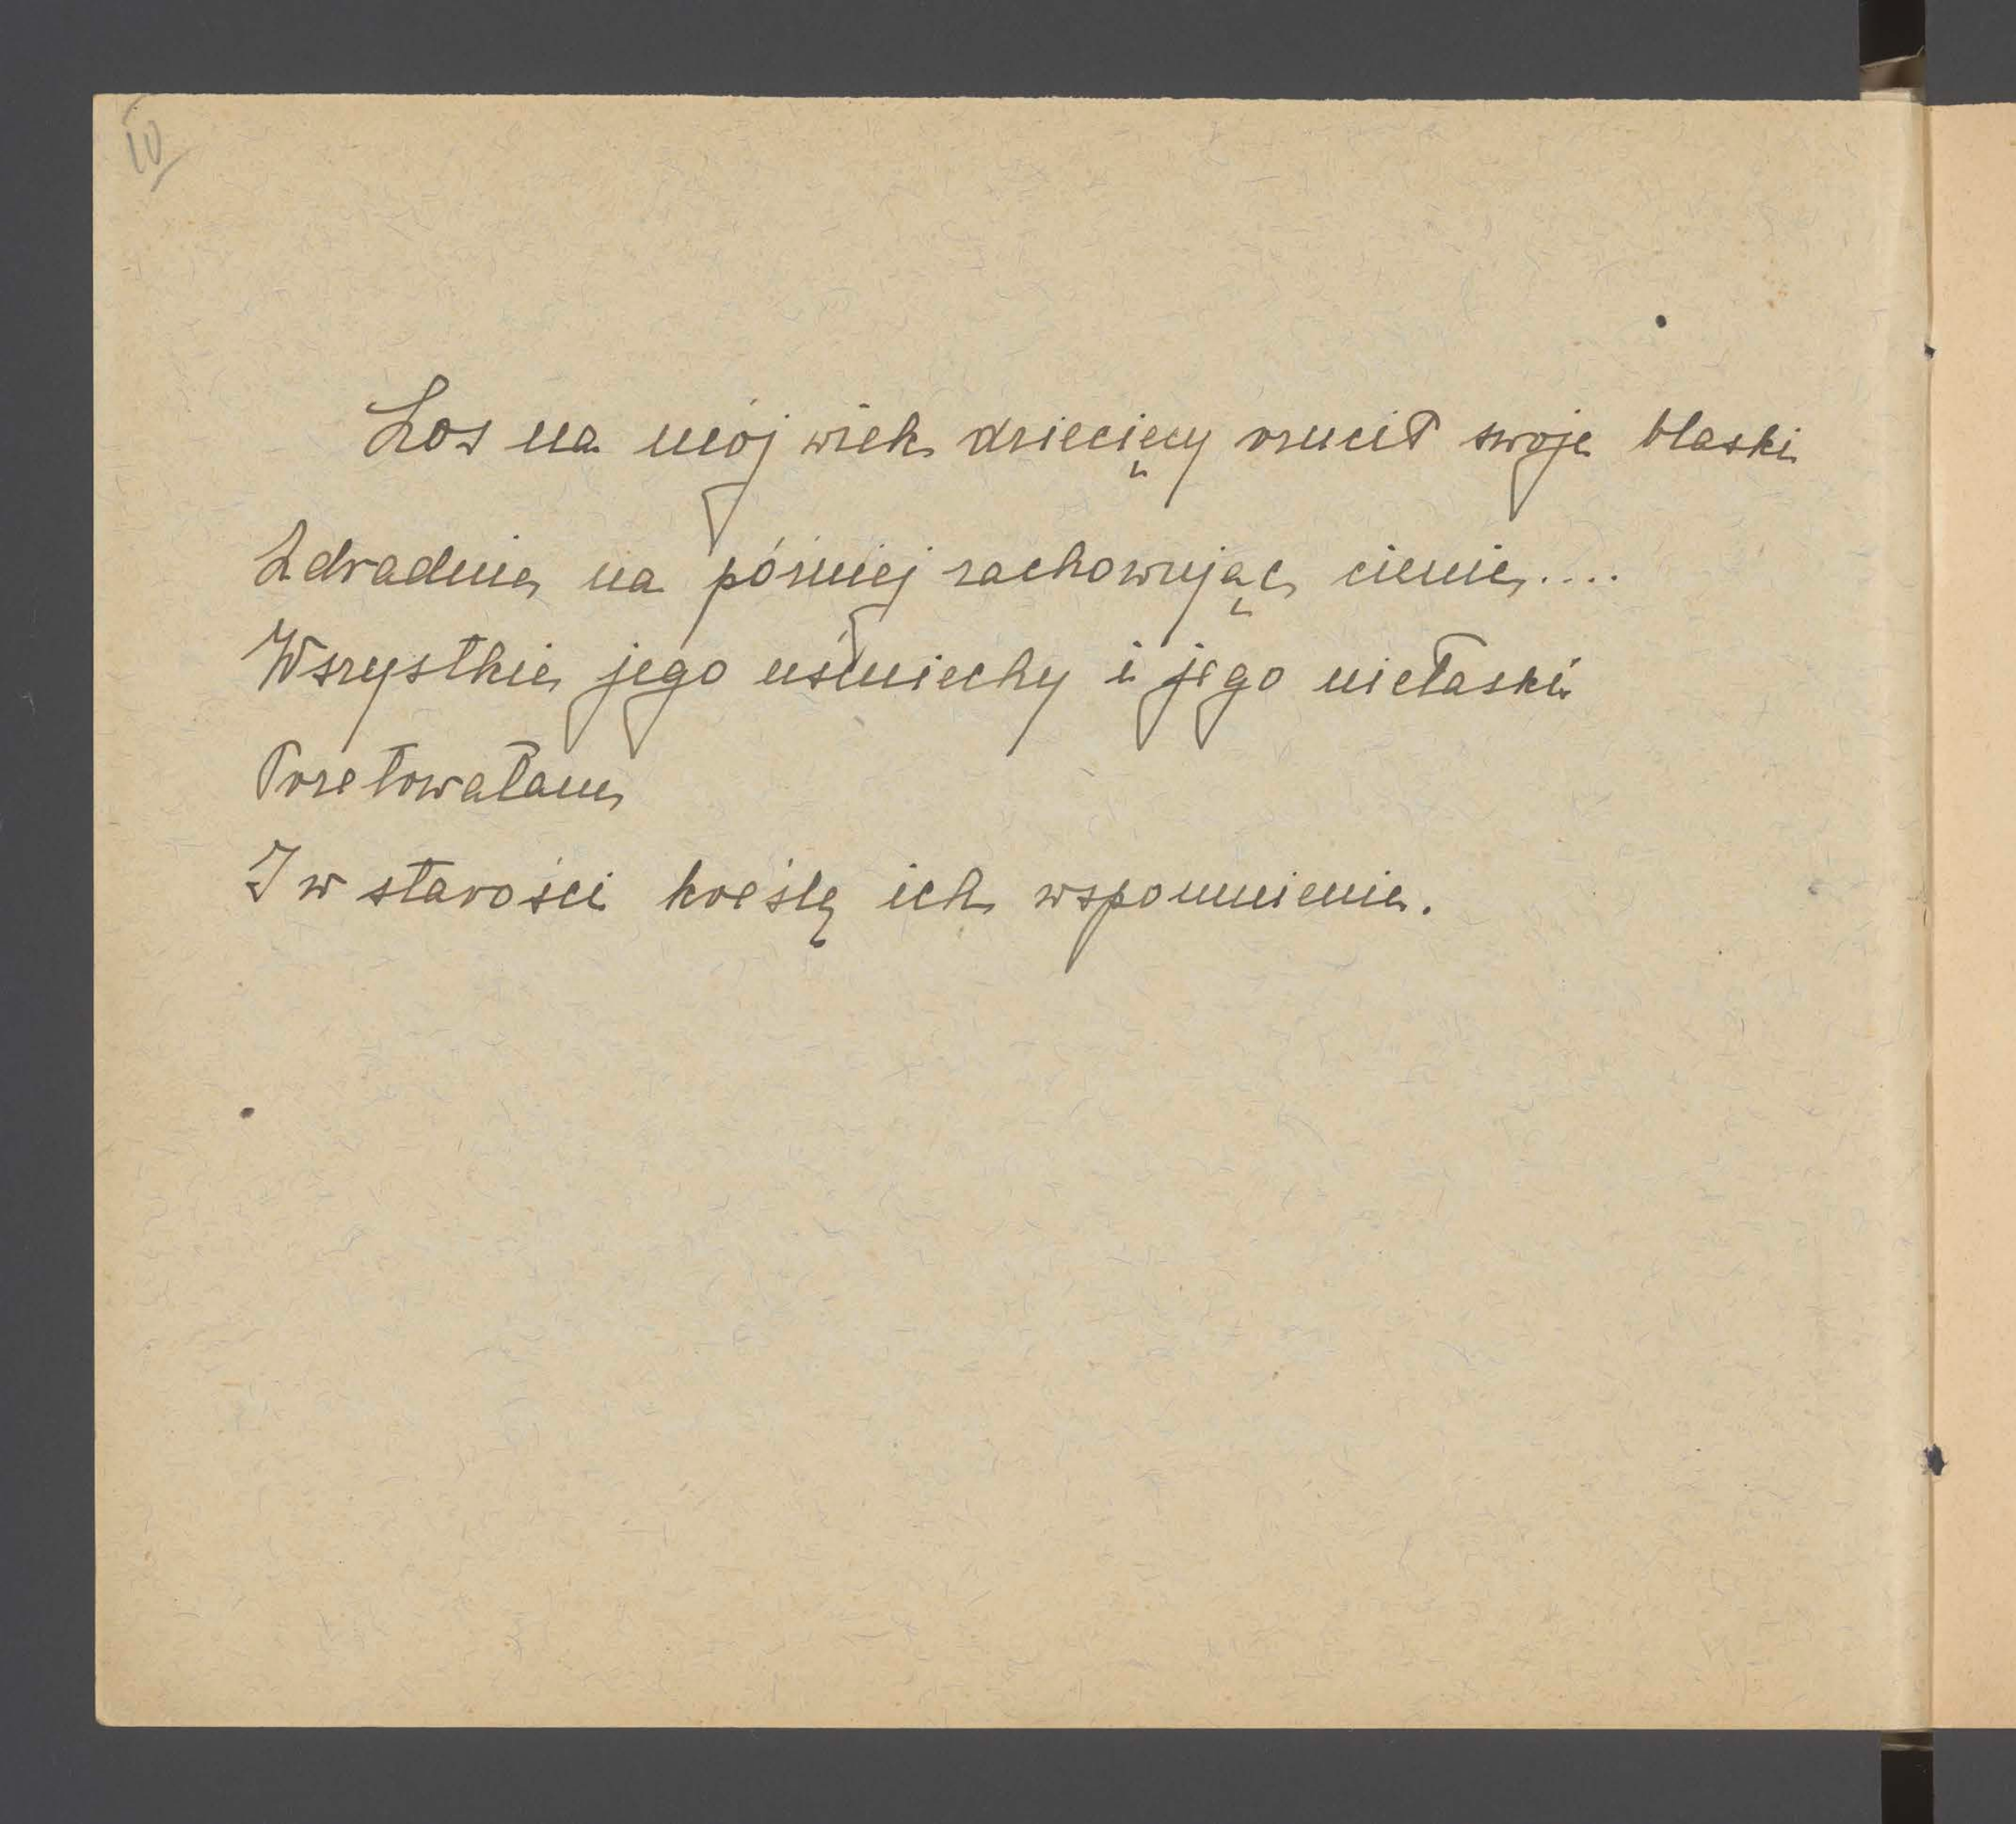 10
Los na mój wiek dziecięcy rzucił swoje blaski
Zdradnie na później zachowując cienie....
Wszystkie jego uśmiechy i jego niełaski
Przetowałam
I w starości kreślę ich wspomnienie.